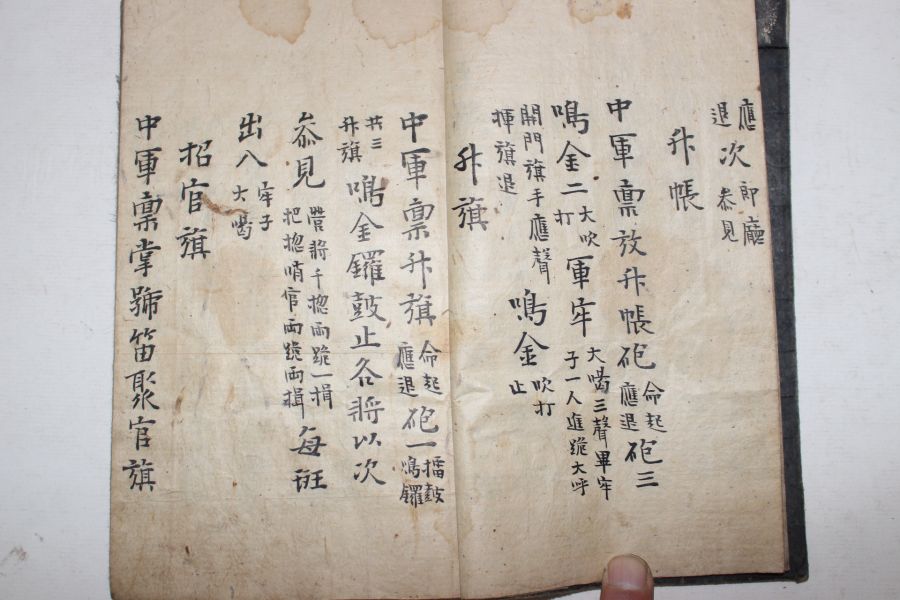 應退次即廳叅見
升帳
中軍稟放升帳砲命起應退砲三
鳴金二大吹打軍牢大喝三聲畢牢子一人進跪大呼
開門旗手應聲揮旗退鳴金吹打止
升旗
中軍稟升旗命起應退砲一擂鼓鳴鑼
共三升旗鳴金鑼鼓止各將以次
叅見營將千摠兩跪一揖把摠哨官兩跪兩揖每班
出入牢子大喝
招官旗
中軍稟掌號笛聚官旗